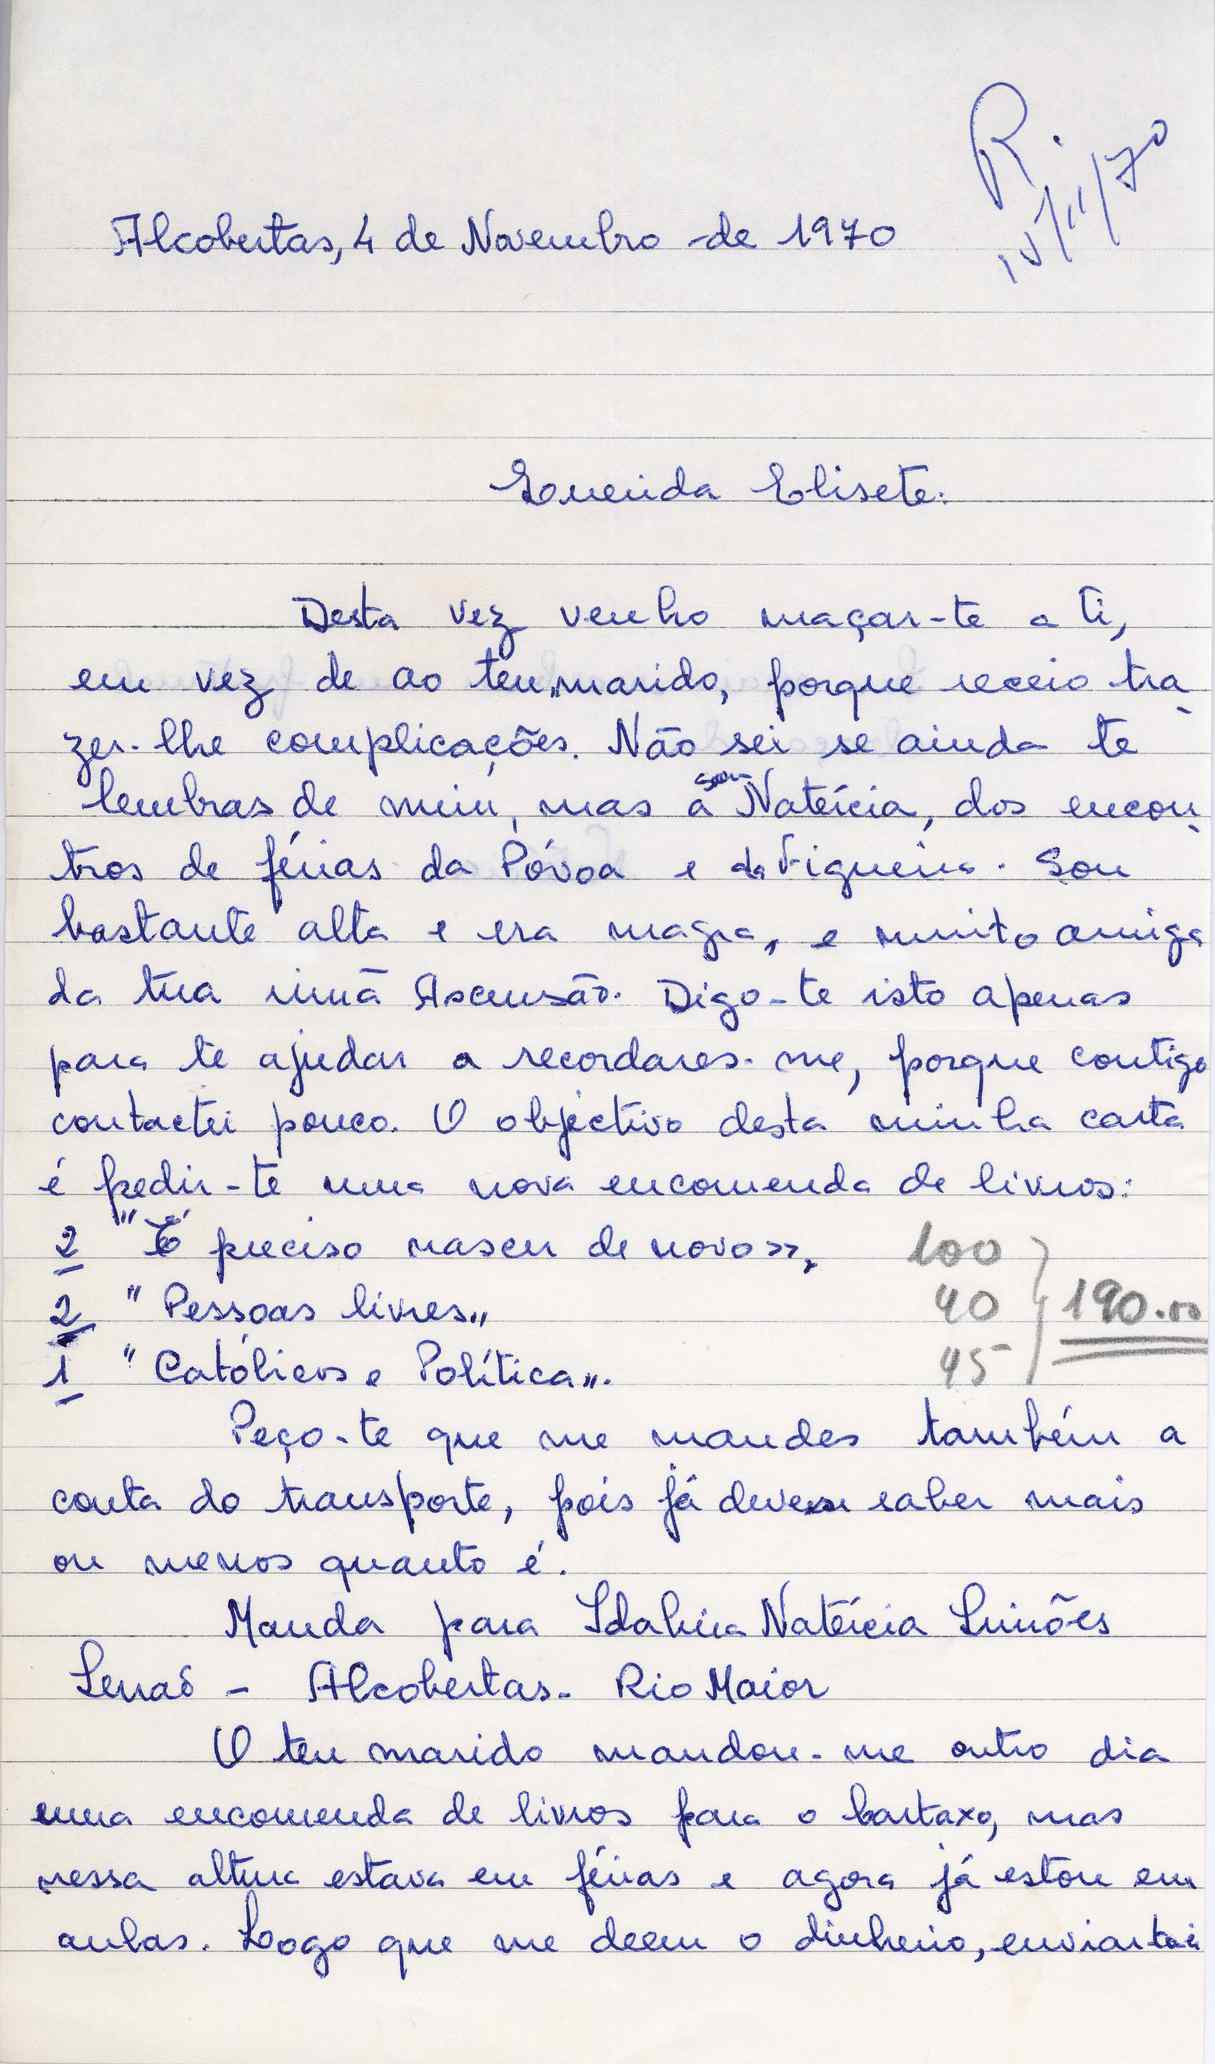 R.
15/11/70
Alcobertas, 4 de Novembro de 1970
Querida Elisete:
Desta vez venho maçar-te a ti,
em vez de ao teu marido, porque receio tra-
zer-lhe complicações. Não sei se ainda te
lembras de mim, mas sou a Natércia, dos encon-
tros de férias da Póvoa e da Figueira. Sou
bastante alta e era magra, e muito amiga
da tua irmã Ascensão. Digo-te isto apenas
para te ajudar a recordares-me, porque contigo
contactei pouco. O objectivo desta minha carta
é pedir-te uma nova encomenda de livros:
2 "É preciso nascer de novo», 100
2 "Pessoas livres" 40 190.00
1 "Católicos e Política". 45
Peço-te que me mandes também a
conta do transporte, pois já devem saber mais
ou menos quanto é.
Manda para Idalina Natércia Simões
Serrad - Alcobertas - Rio Maior
O teu marido mandou-me outro dia
uma encomenda de livros para o Cartaxo, mas
nessa altura estava em férias e agora já estou em
aulas. Logo que me deem o dinheiro, enviar-to-ei